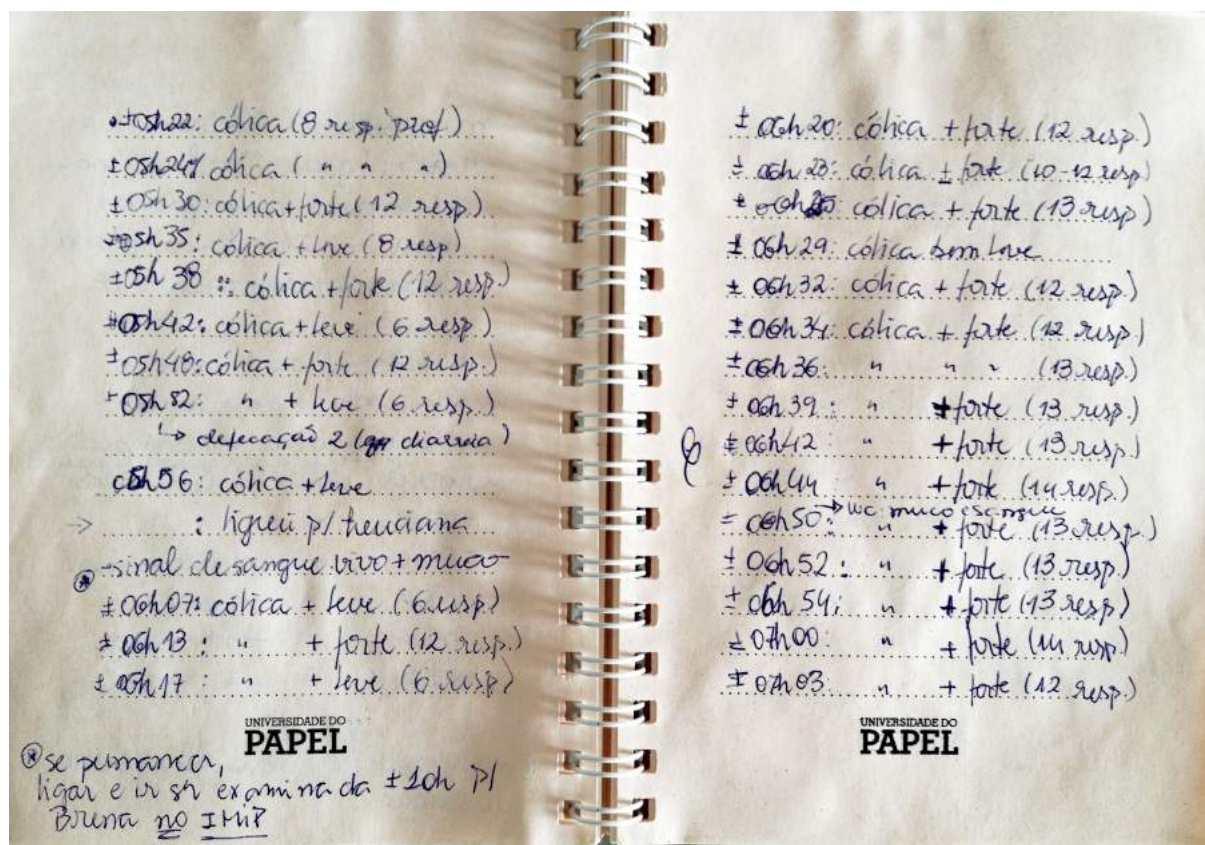 ±05h22: cólica (8 resp. prof.)
±05h24: cólica ( " " " )
±05h30: cólica + forte (12 resp)
±05h35: cólica + leve (8 resp)
±05h38: cólica + forte (12 resp.)
±05h42: cólica + leve (6 resp.)
±05h48: cólica + forte (12 resp.)
±05h52: " + leve (6 resp.)
↳ defecação 2 ( diarreia)
05h56: cólica + leve
→ : liguei p/
⊛ -sinal de sangue vivo + muco
±06h07: cólica + leve (6 resp.)
±06h13: " + forte (12 resp.)
±06h17: " + leve (6 resp)
UNIVERSIDADE DO
PAPEL
⊛ se permanecer,
ligar e ir ser examinada ±10h p/
Brena no IMIP
±06h20: cólica + forte (12 resp.)
±06h23: cólica ± forte (10-12 resp)
±06h25: cólica + forte (13 resp)
±06h29: cólica bem leve
±06h32: cólica + forte (12 resp.)
±06h34: cólica + forte (12 resp.)
±06h36: " " " (13 resp.)
±06h39: " + forte (13 resp.)
±06h42: " + forte (13 resp.)
±06h44: " + forte (14 resp.)
→ wc muco e sangue
±06h50: " + forte (13 resp.)
±06h52: " + forte (13 resp)
±06h54: " + forte (13 resp)
±07h00: " + forte (14 resp)
±07h03: " + forte (12 resp.)
UNIVERSIDADE DO
PAPEL